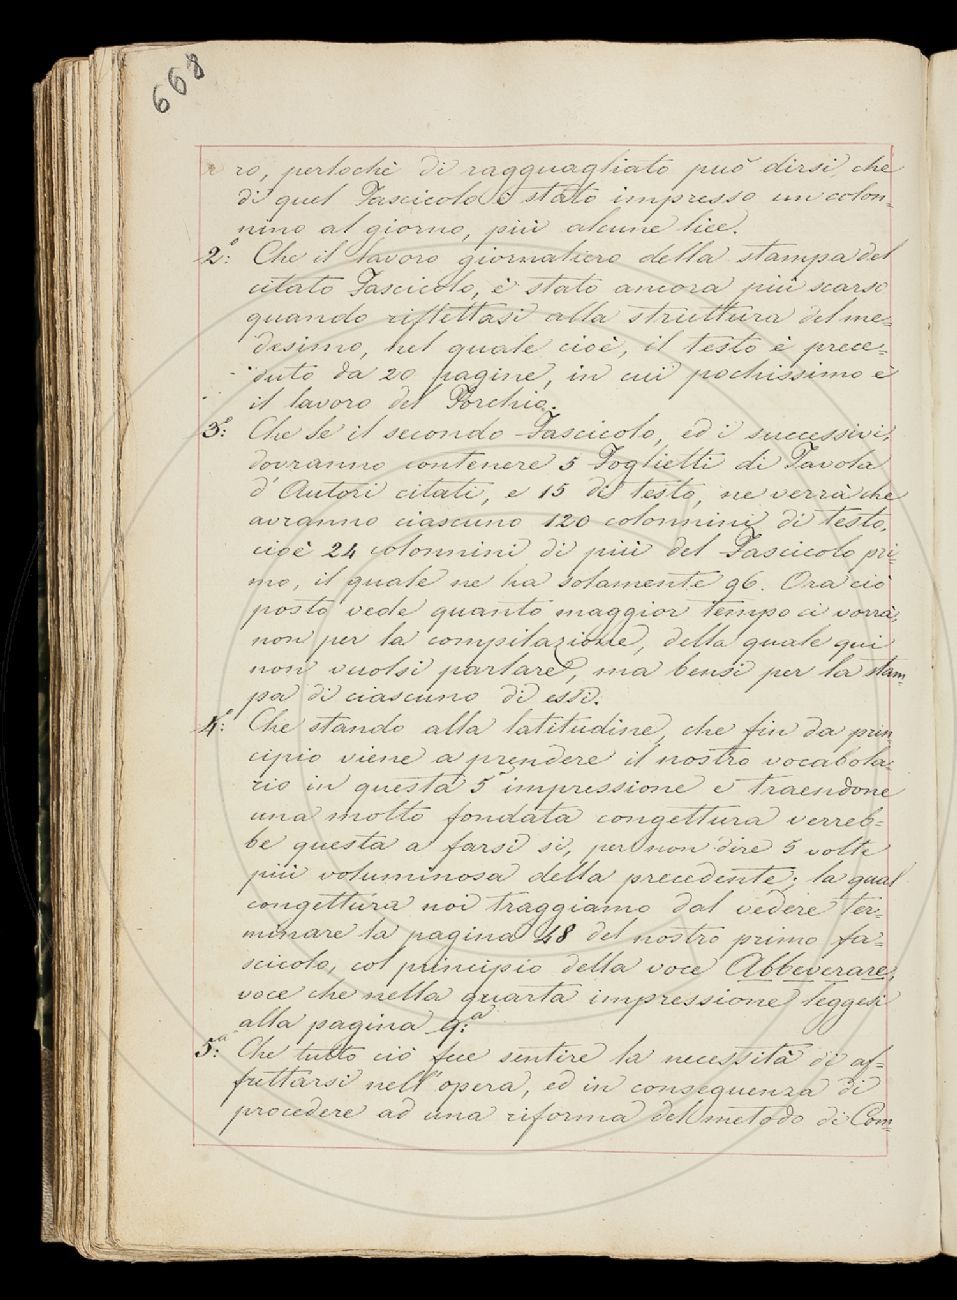 668
ro, perlochè di ragguagliato può dirsi, che
di quel Fascicolo è stato impresso un colon-
nino al giorno, più alcune liee.
2°: Che il lavoro giornaliero della stampa del
citato Fascicolo, è stato ancora più scarso
quando riflettasi alla struttura del me-
desimo, nel quale cioè, il testo è prece-
duto da 20 pagine, in cui pochissimo è
il lavoro del Torchio.
3°: Che se il secondo Fascicolo, ed i successivi,
dovranno contenere 5 Foglietti di Tavola
d'Autori citati, e 15 di testo, ne verrà che
avranno ciascuno 120 colonnini di testo,
cioè 24 colonnini di più del Fascicolo pri-
mo, il quale ne ha solamente 96. Ora ciò
posto vede quanto maggior tempo ci vorrà,
non per la compilazione, della quale qui
non vuolsi parlare, ma bensì per la stam-
pa di ciascuno di essi.
4°: Che stando alla latitudine, che fin da prin
cipio viene a prendere il nostro vocabola-
rio in questa 5a impressione e traendone
una molto fondata congettura verreb-
be questa a farsi si, per non dire 5 volte
più voluminosa della precedente; la qual
congettura noi traggiamo dal vedere ter-
minare la pagina 48 del nostro primo fa-
scicolo, col principio della voce Abbeverare,
voce che nella quarta impressione leggesi
alla pagina 9:a
5:a Che tutto ciò fece sentire la necessità di af-
frettarsi nell'opera, ed in conseguenza di
procedere ad una riforma del metodo di Com-